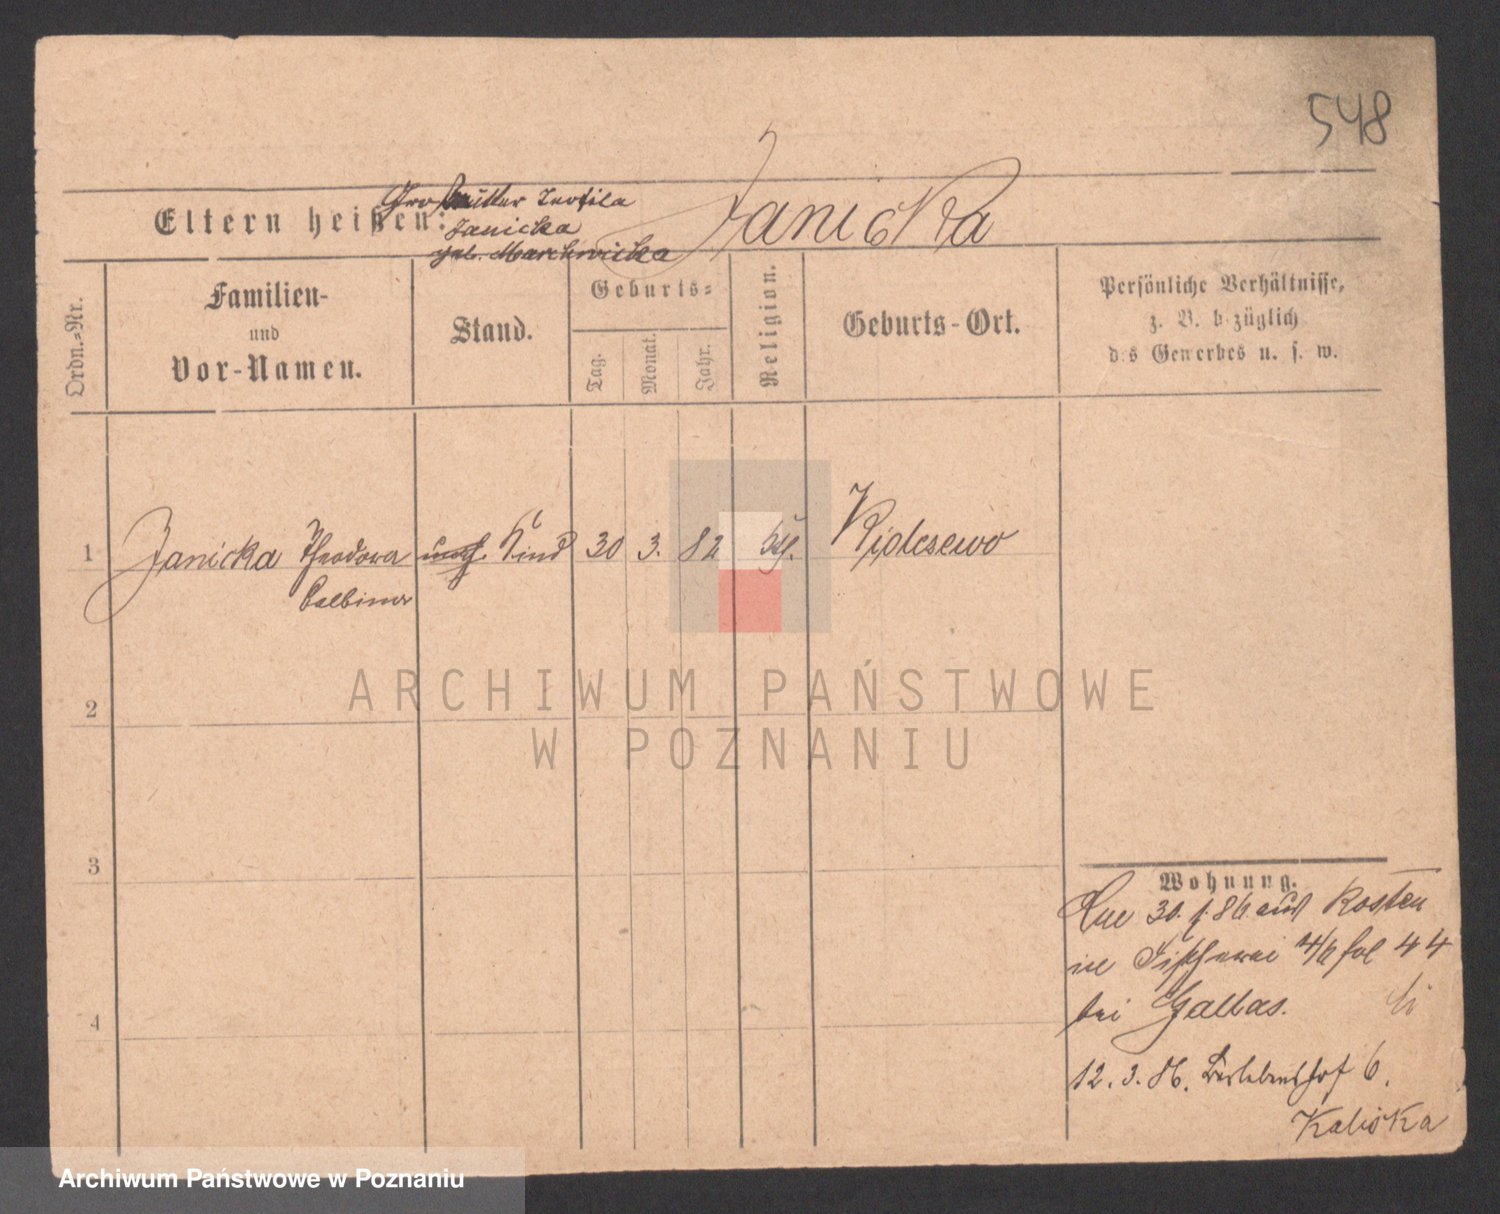 548
Großmutter Teofila
Eltern heißen: Janicka Janicka
geb. Marchwicka
Ordn.-Nr.
Familien-
und
Vor-Namen.
Stand.
Geburts-
Tag.
Monat.
Jahr.
Religion.
Geburts-Ort.
Persönliche Verhältnisse,
z. B. bezüglich
des Gewerbes u. s. w.
1 Janicka Theodora Kind 30 3. 82
Balbina
2
3
4
Wohnung.
30. 86 aus Kosten
in Fischerei 4/6 44
bei Gallas.
12. 3. 86. 6.
Kaliska
ARCHIWUM PAŃSTWOWE
W POZNANIU
Archiwum Państwowe w Poznaniu